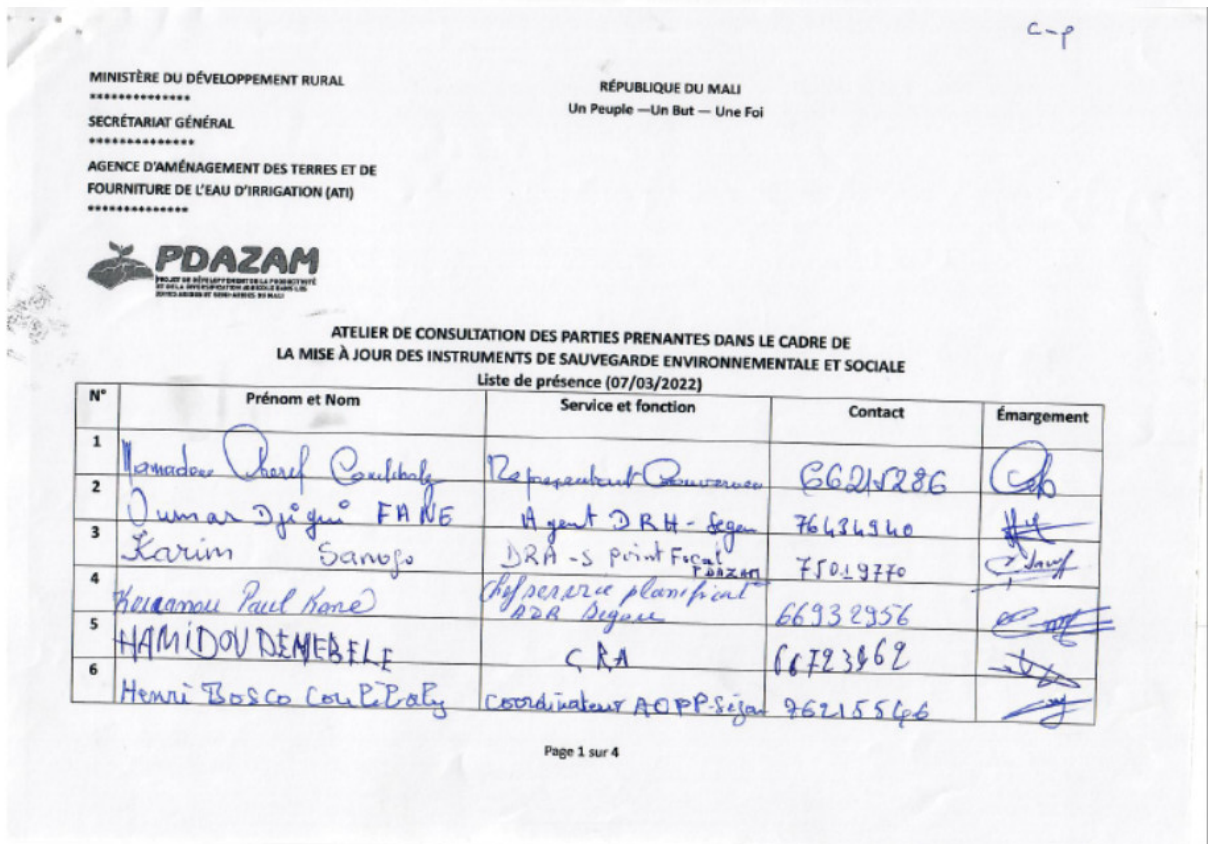 C-P
MINISTÈRE DU DÉVELOPPEMENT RURAL
**************
SECRÉTARIAT GÉNÉRAL
**************
AGENCE D'AMÉNAGEMENT DES TERRES ET DE
FOURNITURE DE L'EAU D'IRRIGATION (ATI)
**************
RÉPUBLIQUE DU MALI
Un Peuple —Un But — Une Foi
PDAZAM
PROJET DE DÉVELOPPEMENT DE LA PRODUCTIVITÉ
ET DE LA DIVERSIFICATION AGRICOLE DANS LES
ZONES ARIDES ET SEMI-ARIDES DU MALI
ATELIER DE CONSULTATION DES PARTIES PRENANTES DANS LE CADRE DE
LA MISE À JOUR DES INSTRUMENTS DE SAUVEGARDE ENVIRONNEMENTALE ET SOCIALE
Liste de présence (07/03/2022)
N° Prénom et Nom Service et fonction Contact Émargement
1 Mamadou Cheref Coulibaly Representant Gouverneur 66215286
2 Oumar Djigui FANE Agent DRH-Segou 76434940
3 Karim Sanogo DRA-S Point Focal PDAZAM 75019770
4 Paul Kané Chef service planificat ADR Segou 66932956
5 HAMIDOU DEMEBELE CRA
6 Henri Bosco Coulibaly Coordinateur AOPP-Ségou 76215546
Page 1 sur 4